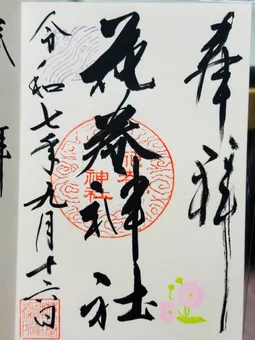 奉拝
花巻神社
神社
令和七年九月十二日